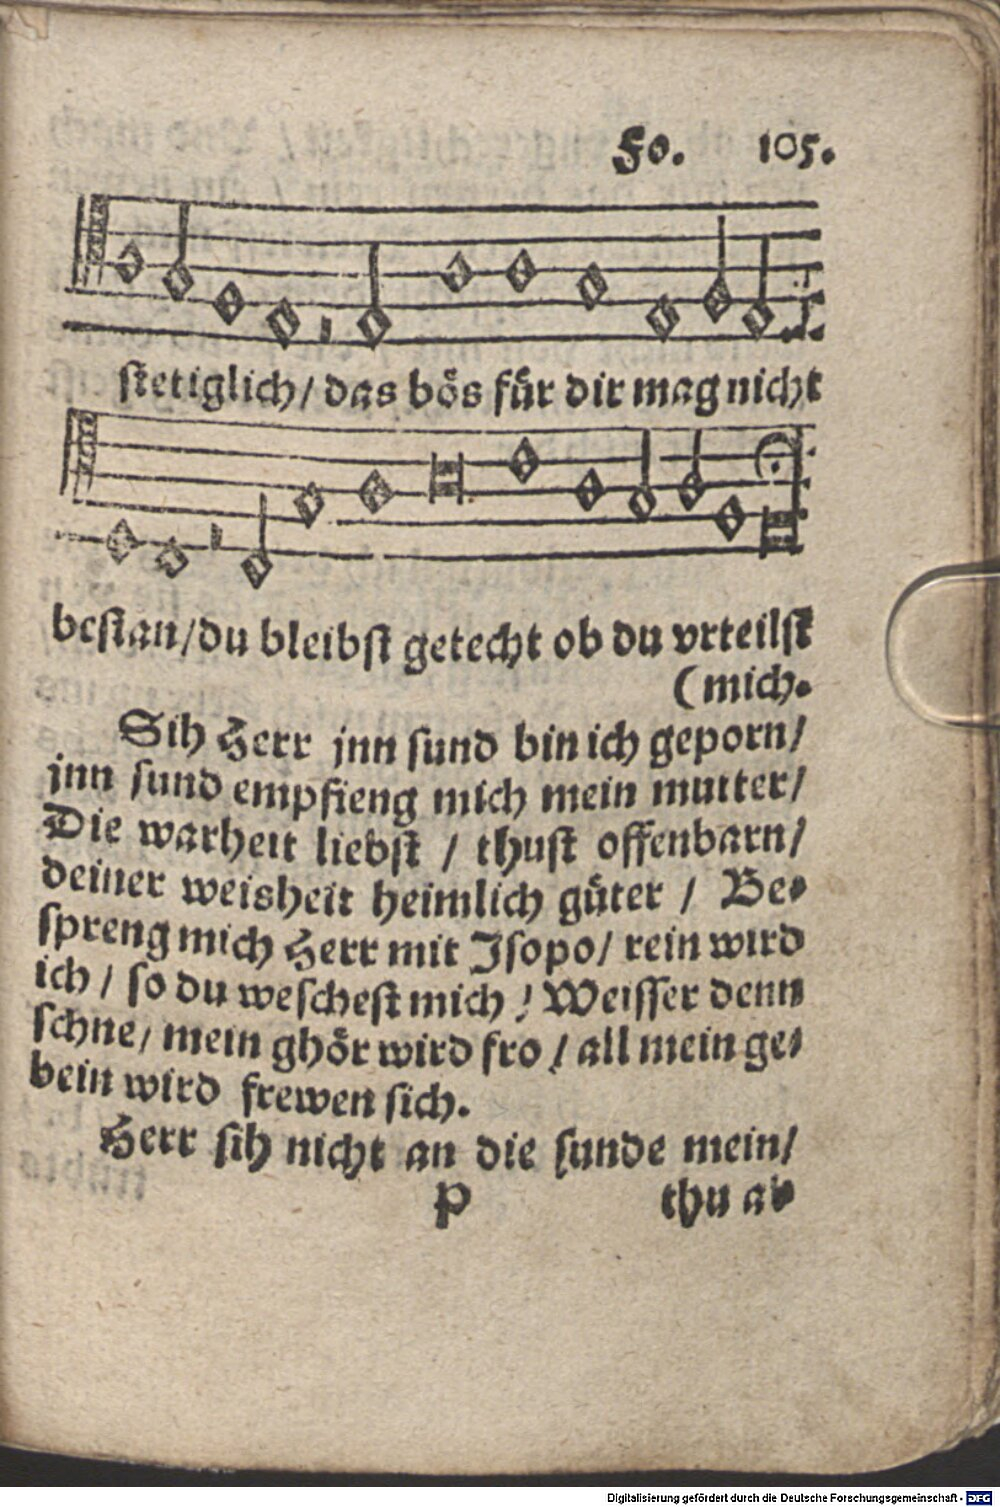 Fo. 105.
stetiglich/ das bös für dir mag nicht
bestan/du bleibst getecht ob du vrteilst
(mich.
Sih Herr jnn sund bin ich geporn/
jnn sund empfieng mich mein mutter/
Die warheit liebst / thust offenbarn/
deiner weisheit heimlich güter / Be⸗
spreng mich Herr mit Jsopo/ rein wird
ich / so du weschest mich / Weisser denn
schne/ mein ghör wird fro / all mein ge⸗
bein wird frewen sich.
Herr sih nicht an die sunde mein/
P thu ab
Digitalisierung gefördert durch die Deutsche Forschungsgemeinschaft - DFG